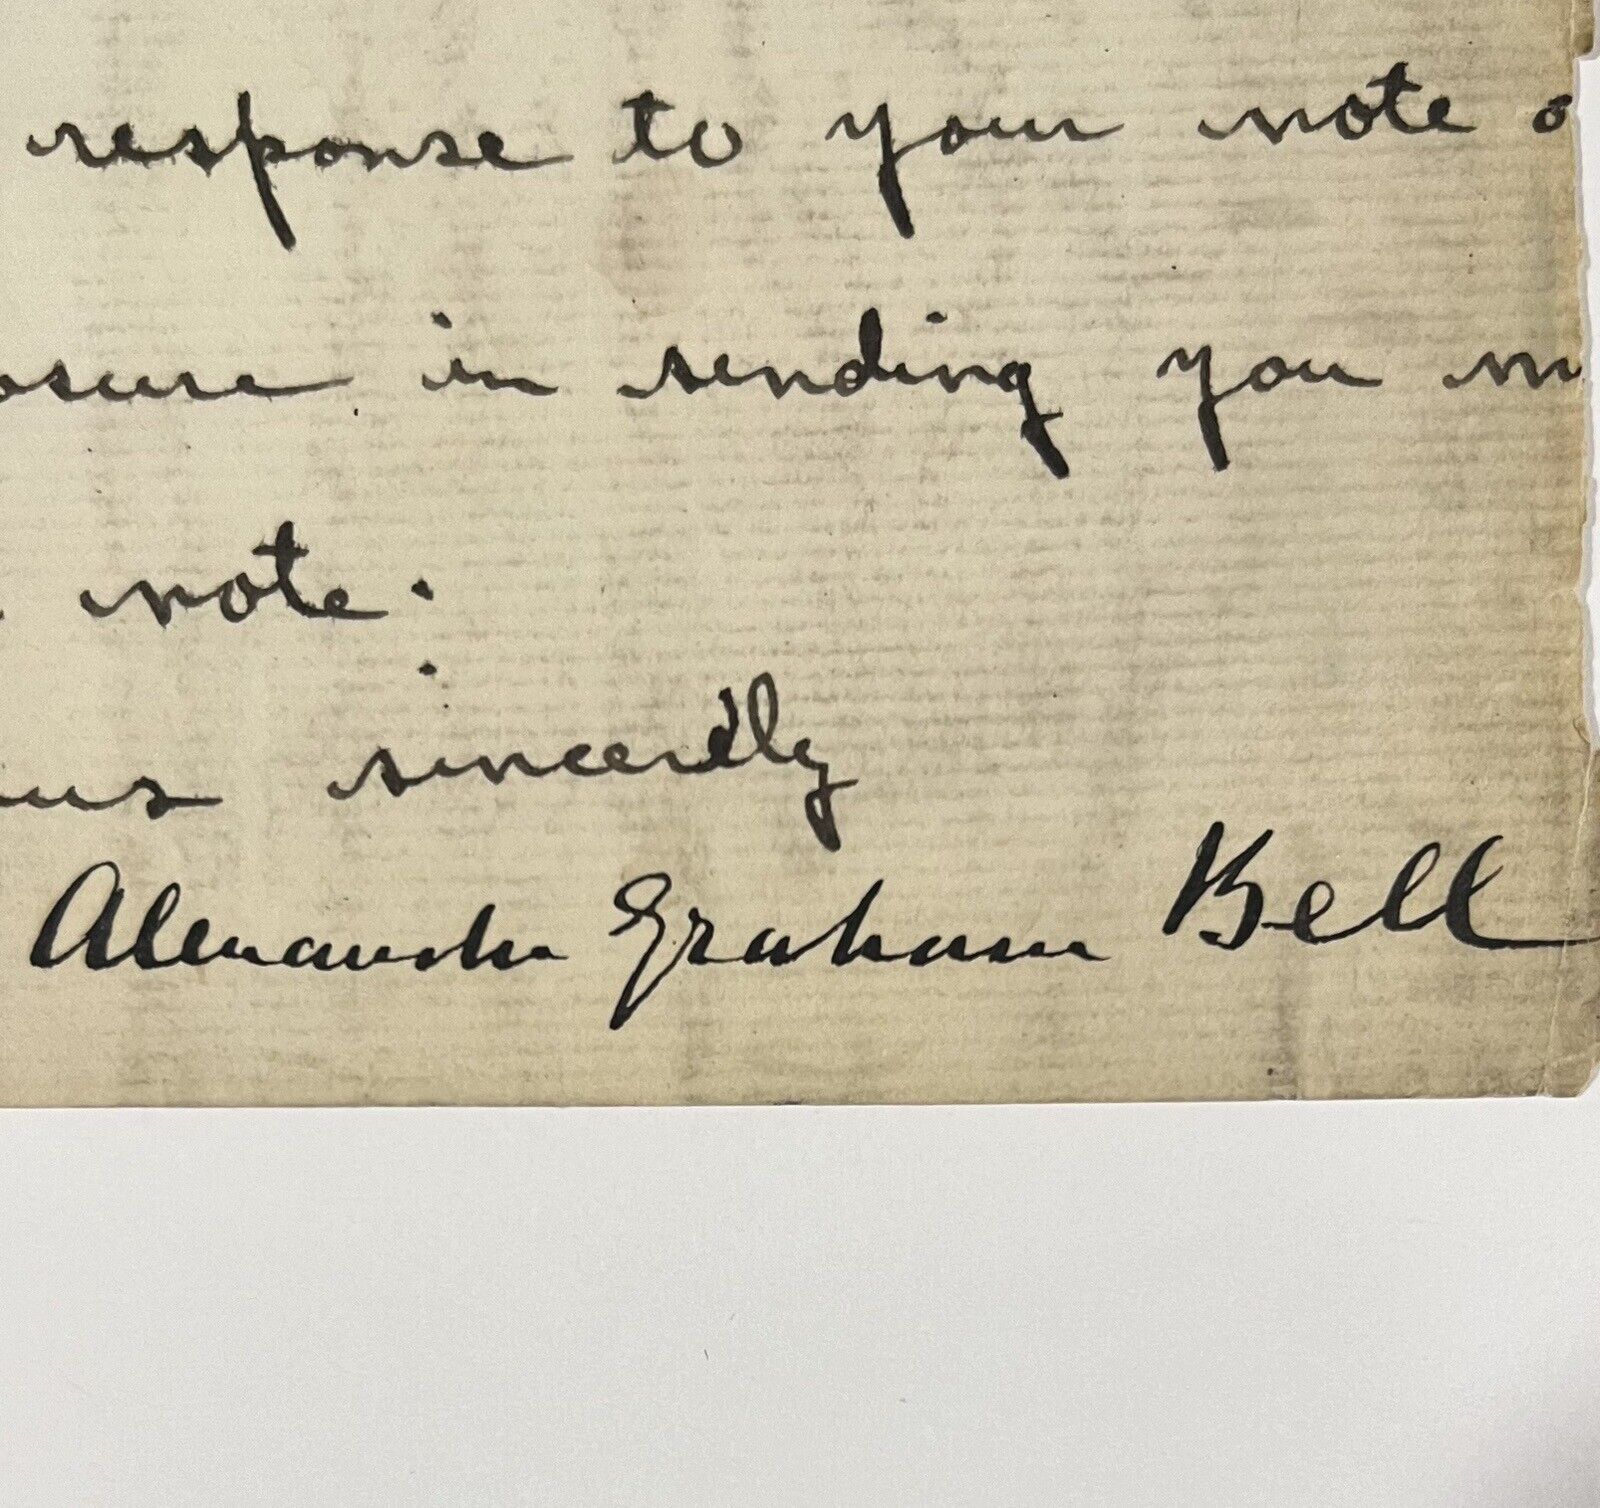 response to your note o
osure in sending you m
note.
urs sincerely
Alexander Graham Bell